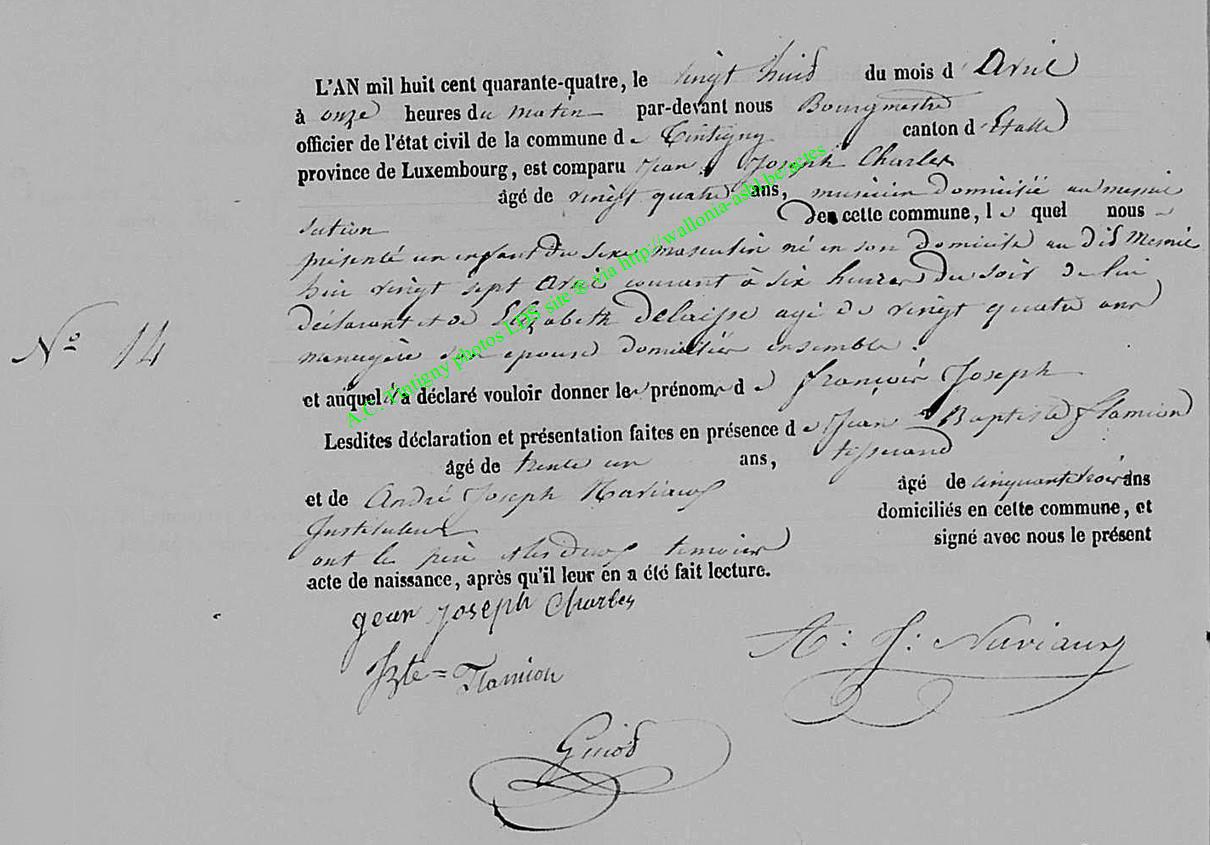 L'AN mil huit cent quarante-quatre, le vingt huid du mois d'Avril
à onze heures du matin par-devant nous Bourgmestre
officier de l'état civil de la commune de Tintigny canton d'Etalle
province de Luxembourg, est comparu Jean Joseph Charles
âgé de vingt quatre ans, musicien domicilié au mesnil
section De cette commune, le quel nous a
présenté un enfant du sexe masculin né en son domicile au dit Mesnil
hier vingt sept Avril courant à six heures du soir de lui
déclarant et de Elizabeth agé de vingt quatre ans
menagère son epouse domiciliés ensemble.
et auquel il a déclaré vouloir donner les prénoms de françois Joseph
Lesdites déclaration et présentation faites en présence de Jean Baptiste flamion
âgé de trente un ans, tisserand
et de André Joseph Naviaux âgé de cinquante trois ans
Instituteur domiciliés en cette commune, et
ont le père et les deux temoins signé avec nous le présent
acte de naissance, après qu'il leur en a été fait lecture.
N° 14
gean joseph Charles
A: J: Naviaux
Bte = Flamion
A.C. Tintigny photos LDS site & via http://wallonia-asbl.be/actes